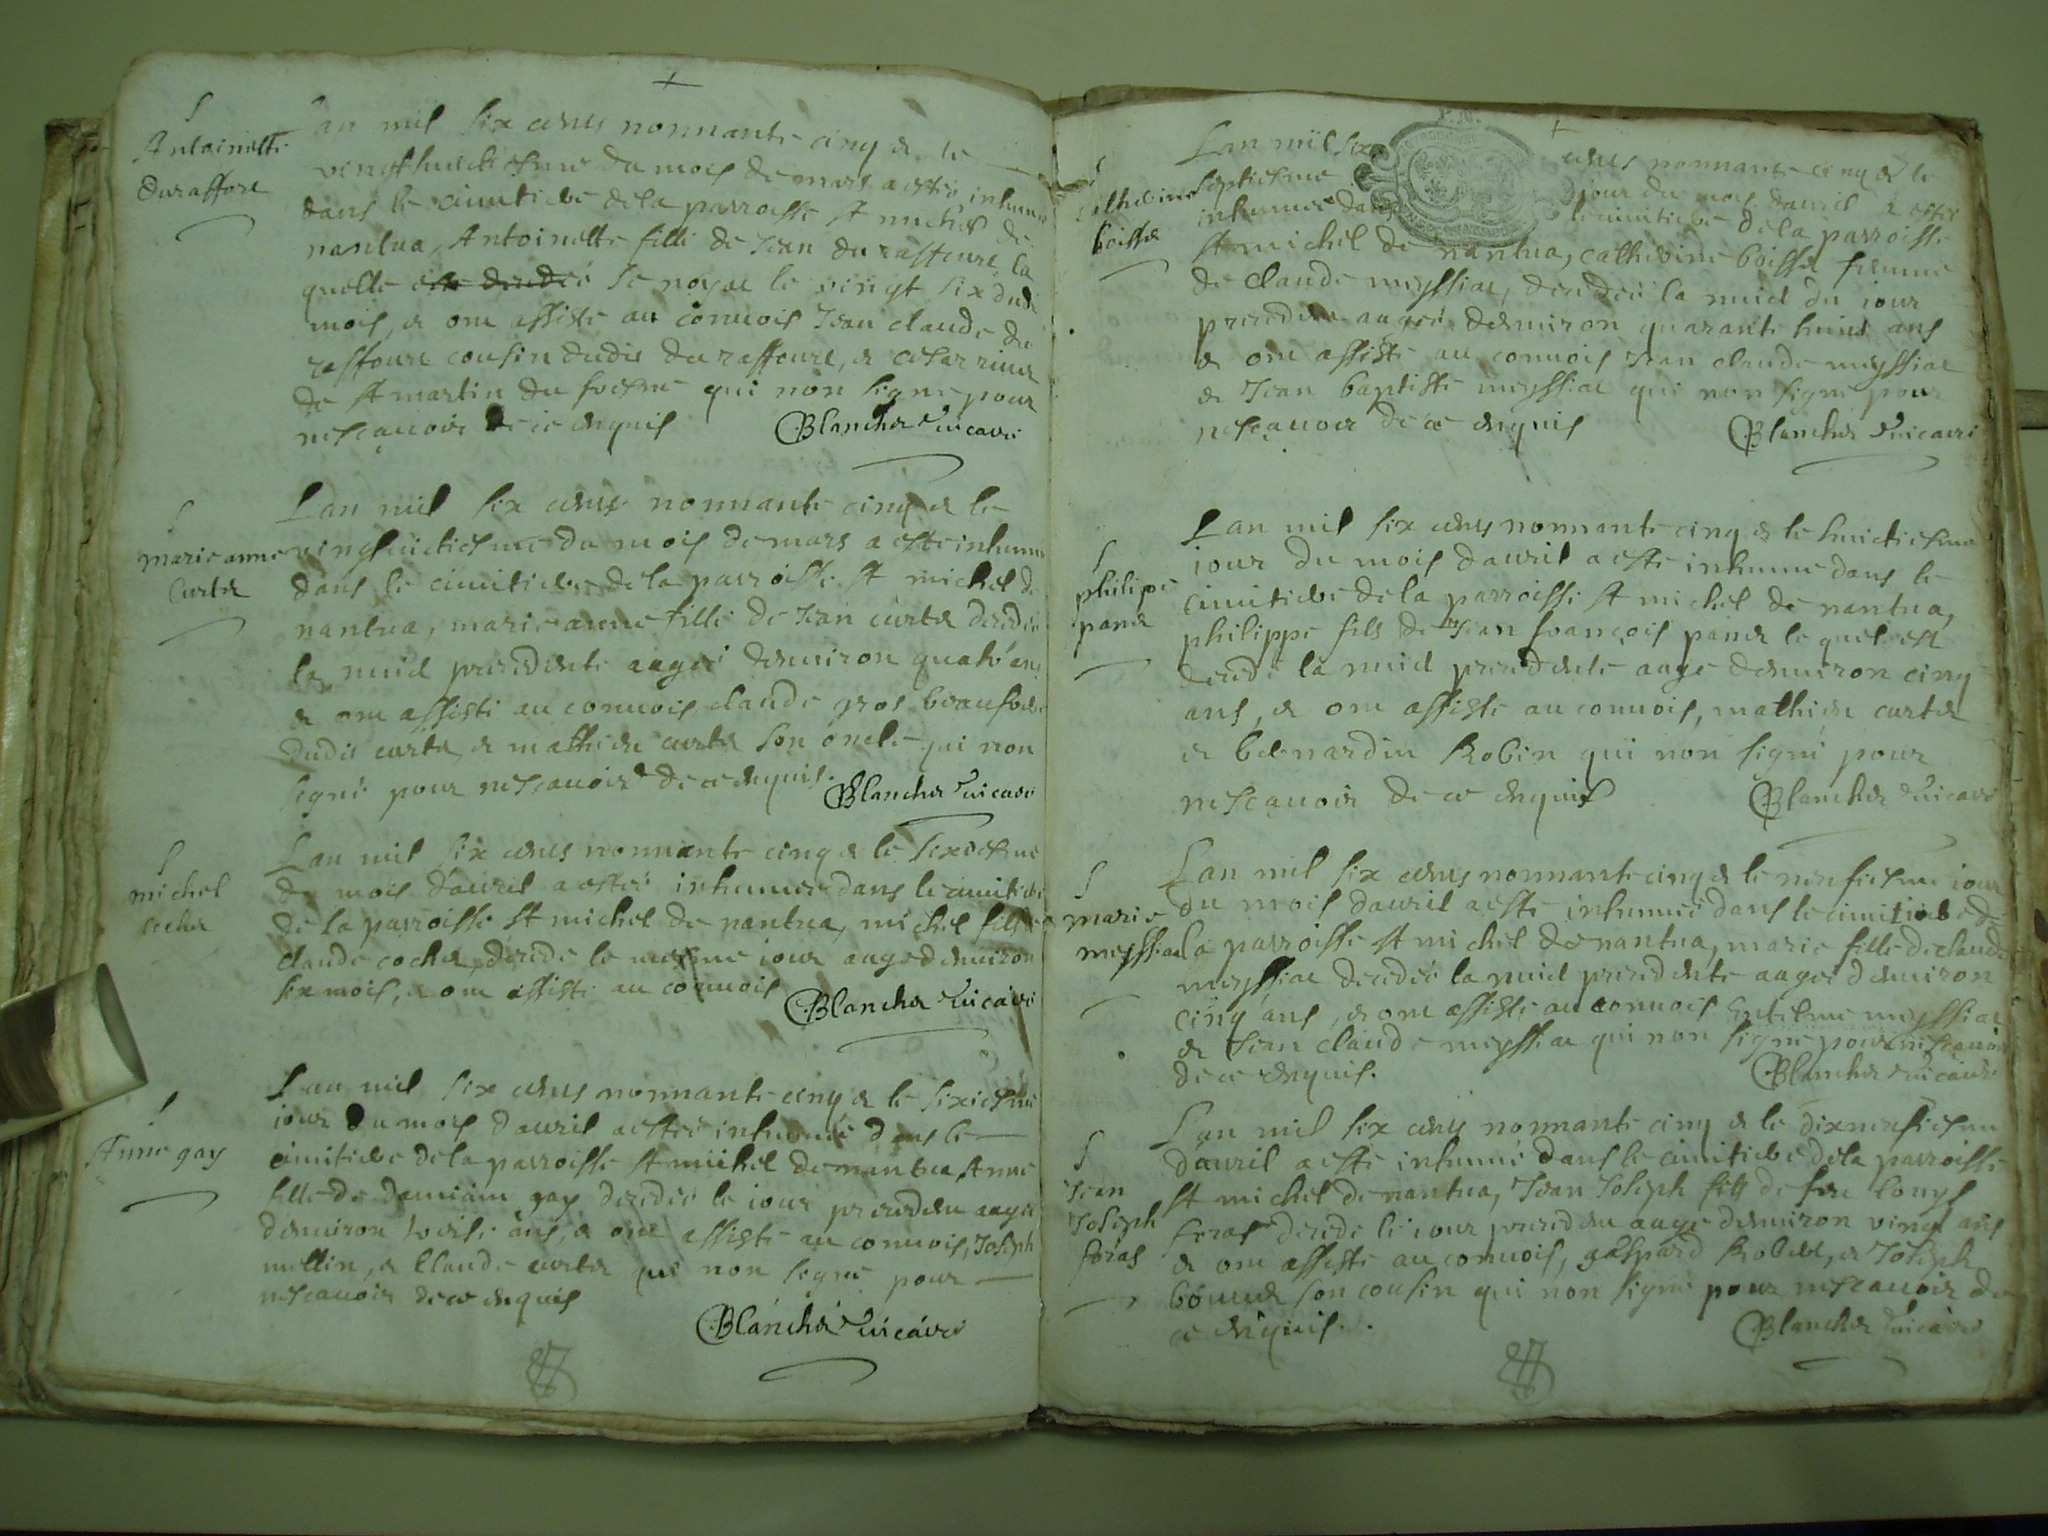 Antoinette
duraffore
Lan mil six cents nonnante cinq & le
vingthuictiesme du mois de mars a esté inhumé
dans le cimitiere de la parroisse st michel de
nantua, Antoinette fille de Jean du raffoure la
quelle se noyat le vingt six dudi
mois, & ont assisté au convois Jean claude du
raffoure cousin dudit du raffoure, &
de st martin du fresne qui non signe pour
nescauoir de ce enquis Blanchet vicaire
marie anne
Curtet
Lan mil six cents nonnante cinq & le
vingthuictiesme du mois de mars a este inhumé
dans le cimitiere de la parroisse st michel de
nantua, marie anne fille de Jean curtet decedée
la nuict precedente aagée denuiron quatr'ans
& ont assisté au conuois claude gros beaufrere
dudit curtet & mathieu curtet son oncle qui non
signé pour nescauoir de ce enquis. Blanchet vicaire
michel
cochet
Lan mil six cents nonnante cinq & le sixiesme
du mois dauril a esté inhumé dans le cimitiere
de la parroisse st michel de nantua, michel fils de
claude cochet, decede le mesme jour aage denuiron
six mois, & ont assisté au conuois Blanchet vicaire
Anne gay
Lan mil six cents nonnante cinq & le sixiesme
iour du mois dauril a esté inhumée dans le
cimitiere de la parroisse st michel de nantua Anne
fille de damiain gay decedée le iour precedent aagée
denuiron treise ans, & ont assisté au conuois, Joseph
mettin, & Claude curtet qui non signé pour
nescauoir de ce enquis
Blanchet vicaire
catherine
boisset
Lan mil six cents nonnante cinq & le
septiesme jour du mois dauril a esté
inhumée dans le cimitiere de la parroisse
st michel de nantua, catherine boisset femme
de claude meyssiat, decedée la nuict du iour
precedent aagée denuiron quarante huict ans
& ont assisté au conuois Jean claude meyssiat
& Jean baptiste meyssiat qui non signé pour
nescauoir de ce enquis Blanchet vicaire
philipe
panet
Lan mil six cents nonnante cinq & le huictiesme
iour du mois dauril a esté inhumé dans le
cimitiere de la parroisse st michel de nantua,
philippe fils de Jean françois panet le quel est
decedé la nuict precedente aagé denuiron cinq
ans, & ont assisté au conuois, mathieu curtet
& bernardin Robin qui non signé pour
nescauoir de ce enquis Blanchet vicaire
marie
meyssiat
Lan mil six cents nonnante cinq & le neufiesme iour
du mois dauril a esté inhumée dans le cimitiere de
la parroisse st michel de nantua, marie fille de claude
meyssiat decedée la nuict precedente aagée denuiron
cinq ans, & ont assisté au conuois meyssiat
& Jean claude meyssiat qui non signé pour nescauoir
de ce enquis. Blanchet vicaire
Jean
Joseph
foras
Lan mil six cents nonnante cinq & le dixneufiesme
dauril a esté inhumé dans le cimitiere de la parroisse
st michel de nantua, Jean Joseph fils de feu Louys
foras decedé le iour precedent aagé denuiron vingt ans
& ont assisté au conuois, gaspard Robert, & Joseph
son cousin qui non signé pour nescauoir de
ce enquis. Blanchet vicaire